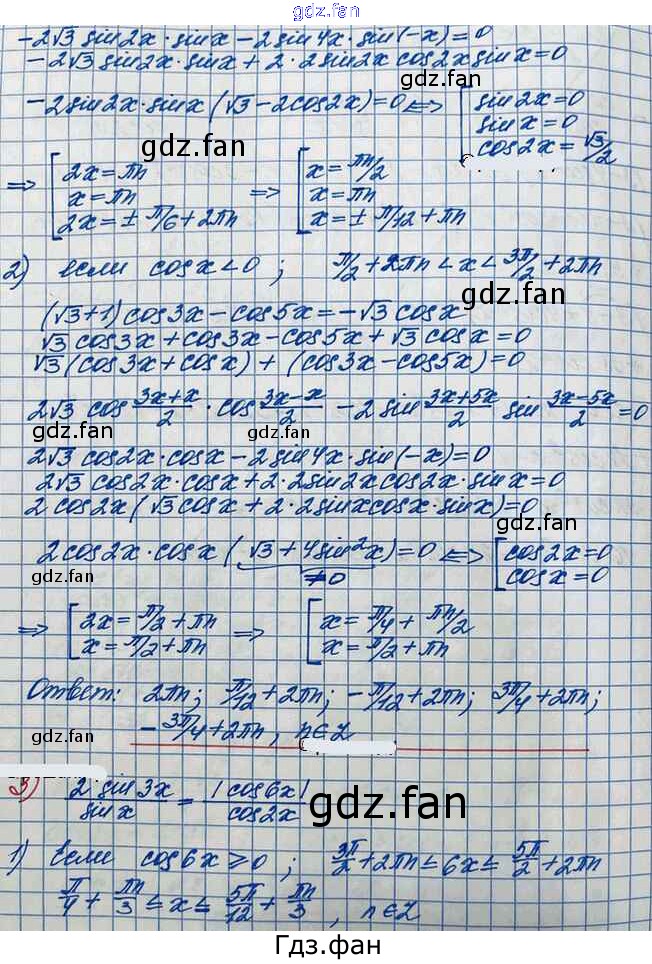 gdz.fan
-2√3 sin2x · sinx - 2sin4x · sin(-x) = 0
-2√3 sin2x · sinx + 2 · 2sin2x cos2x sinx = 0
-2sin2x · sinx (√3 - 2cos2x) = 0 <=> [ sin2x = 0
sinx = 0
cos2x = √3/2
gdz.fan
gdz.fan
=> [ 2x = πn => [ x = πn/2
x = πn x = πn
2x = ± π/6 + 2πn x = ± π/12 + πn
2) если cosx < 0 ; π/2 + 2πn < x < 3π/2 + 2πn
gdz.fan
gdz.fan
(√3+1) cos3x - cos5x = -√3 cosx
√3 cos3x + cos3x - cos5x + √3 cosx = 0
√3 (cos3x + cosx) + (cos3x - cos5x) = 0
2√3 cos (3x+x)/2 · cos (3x-x)/2 - 2 sin (3x+5x)/2 sin (3x-5x)/2 = 0
gdz.fan
gdz.fan
2√3 cos2x · cosx - 2sin4x · sin(-x) = 0
2√3 cos2x · cosx + 2 · 2sin2x cos2x · sinx = 0
2 cos2x (√3 cosx + 2 · 2sinx cosx · sinx) = 0
gdz.fan
2cos2x · cosx (√3 + 4sin²x) = 0 <=> [ cos2x = 0
≠0 cosx = 0
gdz.fan
gdz.fan
=> [ 2x = π/2 + πn => [ x = π/4 + πn/2
x = π/2 + πn x = π/2 + πn
gdz.fan
Ответ: 2πn; π/12 + 2πn; -π/12 + 2πn; 3π/4 + 2πn;
-3π/4 + 2πn, n∈Z
gdz.fan
3) 2 sin3x / sinx = |cos6x| / cos2x
gdz.fan
1) Если cos6x ≥ 0 ; 3π/2 + 2πn ≤ 6x ≤ 5π/2 + 2πn
π/4 + πn/3 ≤ x ≤ 5π/12 + πn/3 , n∈Z
Гдз.фан